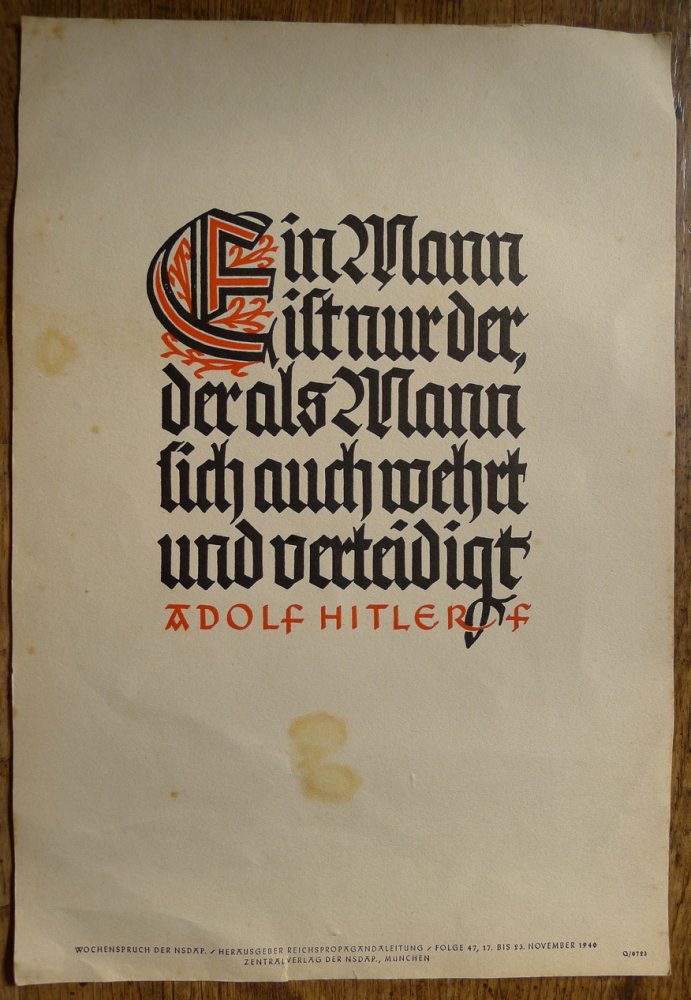 Ein Mann
ist nur der,
der als Mann
sich auch wehrt
und verteidigt
ADOLF HITLER
WOCHENSPRUCH DER NSDAP. / HERAUSGEBER REICHSPROPAGANDALEITUNG / FOLGE 47, 17. BIS 23. NOVEMBER 1940
Q/0723
ZENTRALVERLAG DER NSDAP., MÜNCHEN